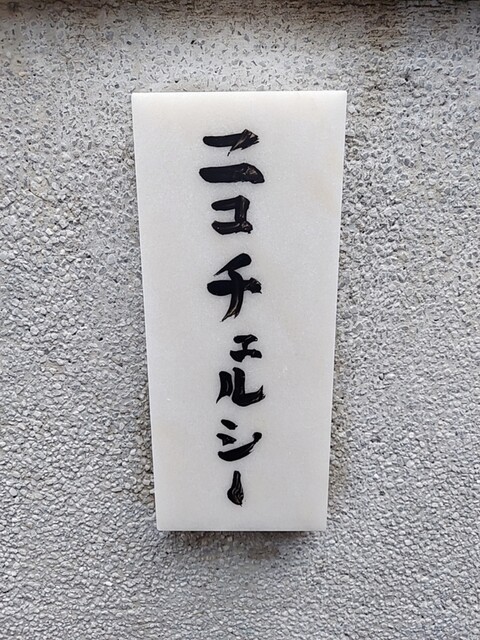 ニコチェルシー